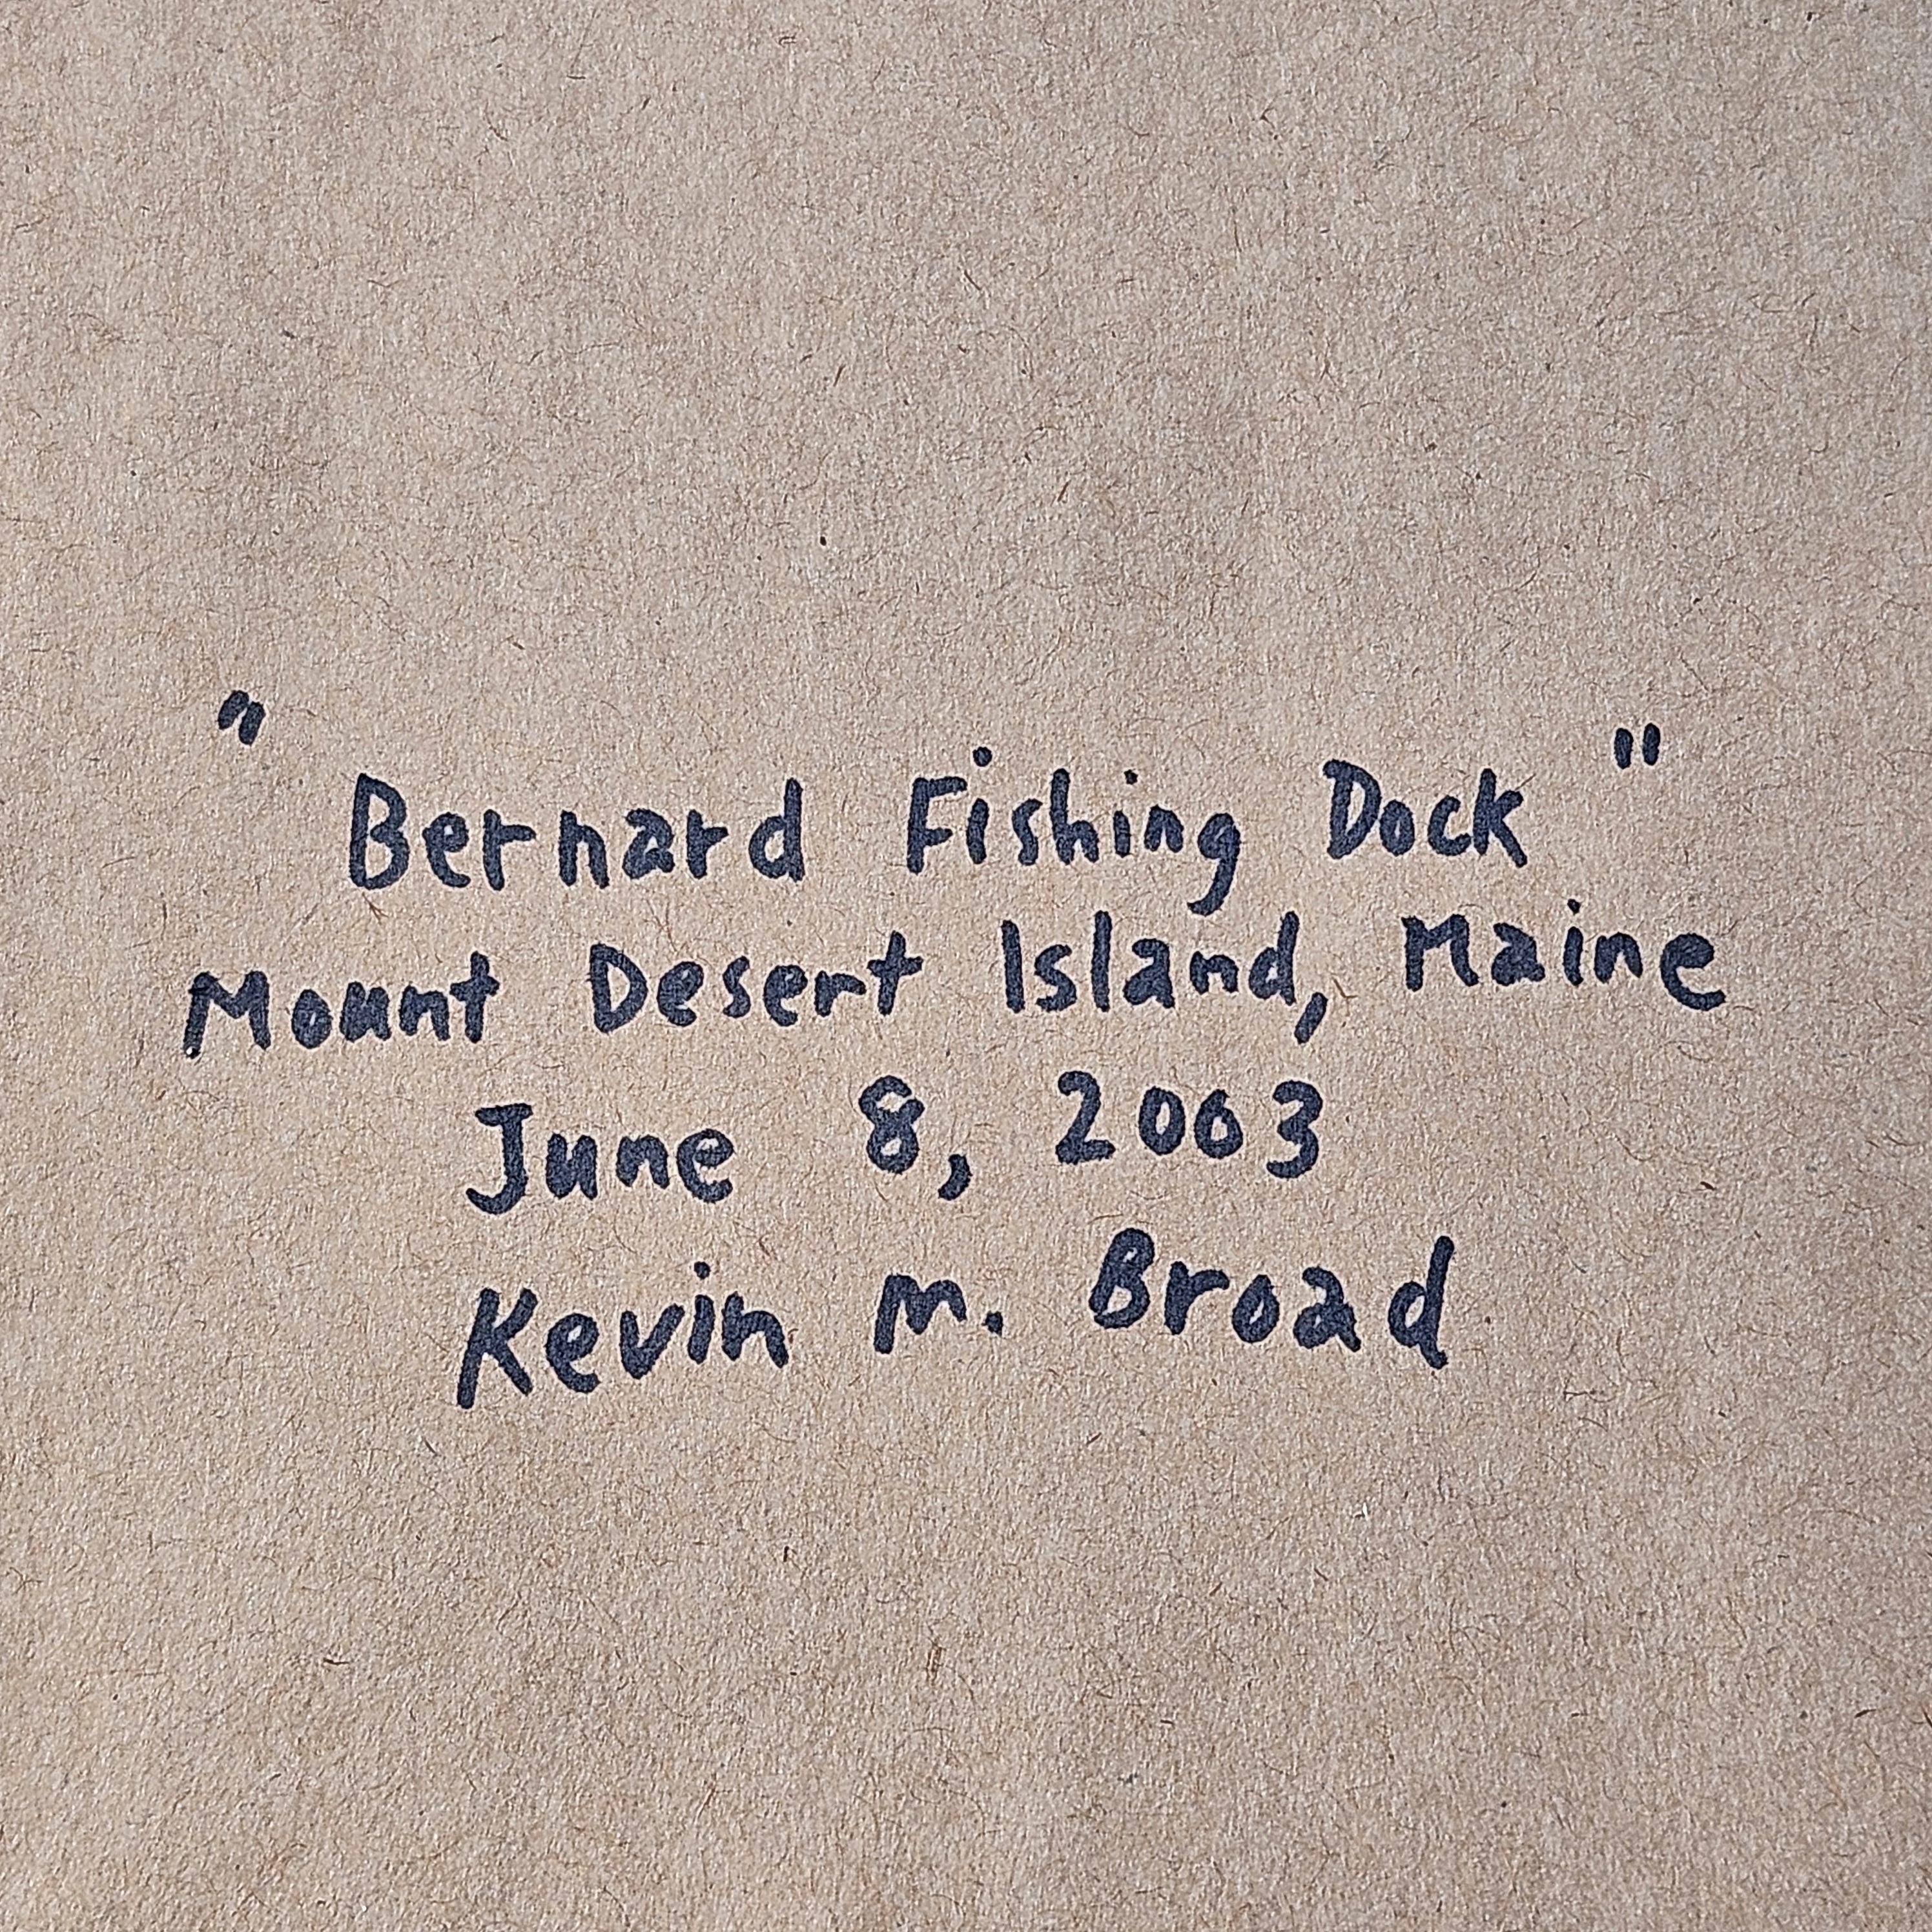 " Bernard Fishing Dock "
Mount Desert Island, Maine
June 8, 2003
Kevin M. Broad